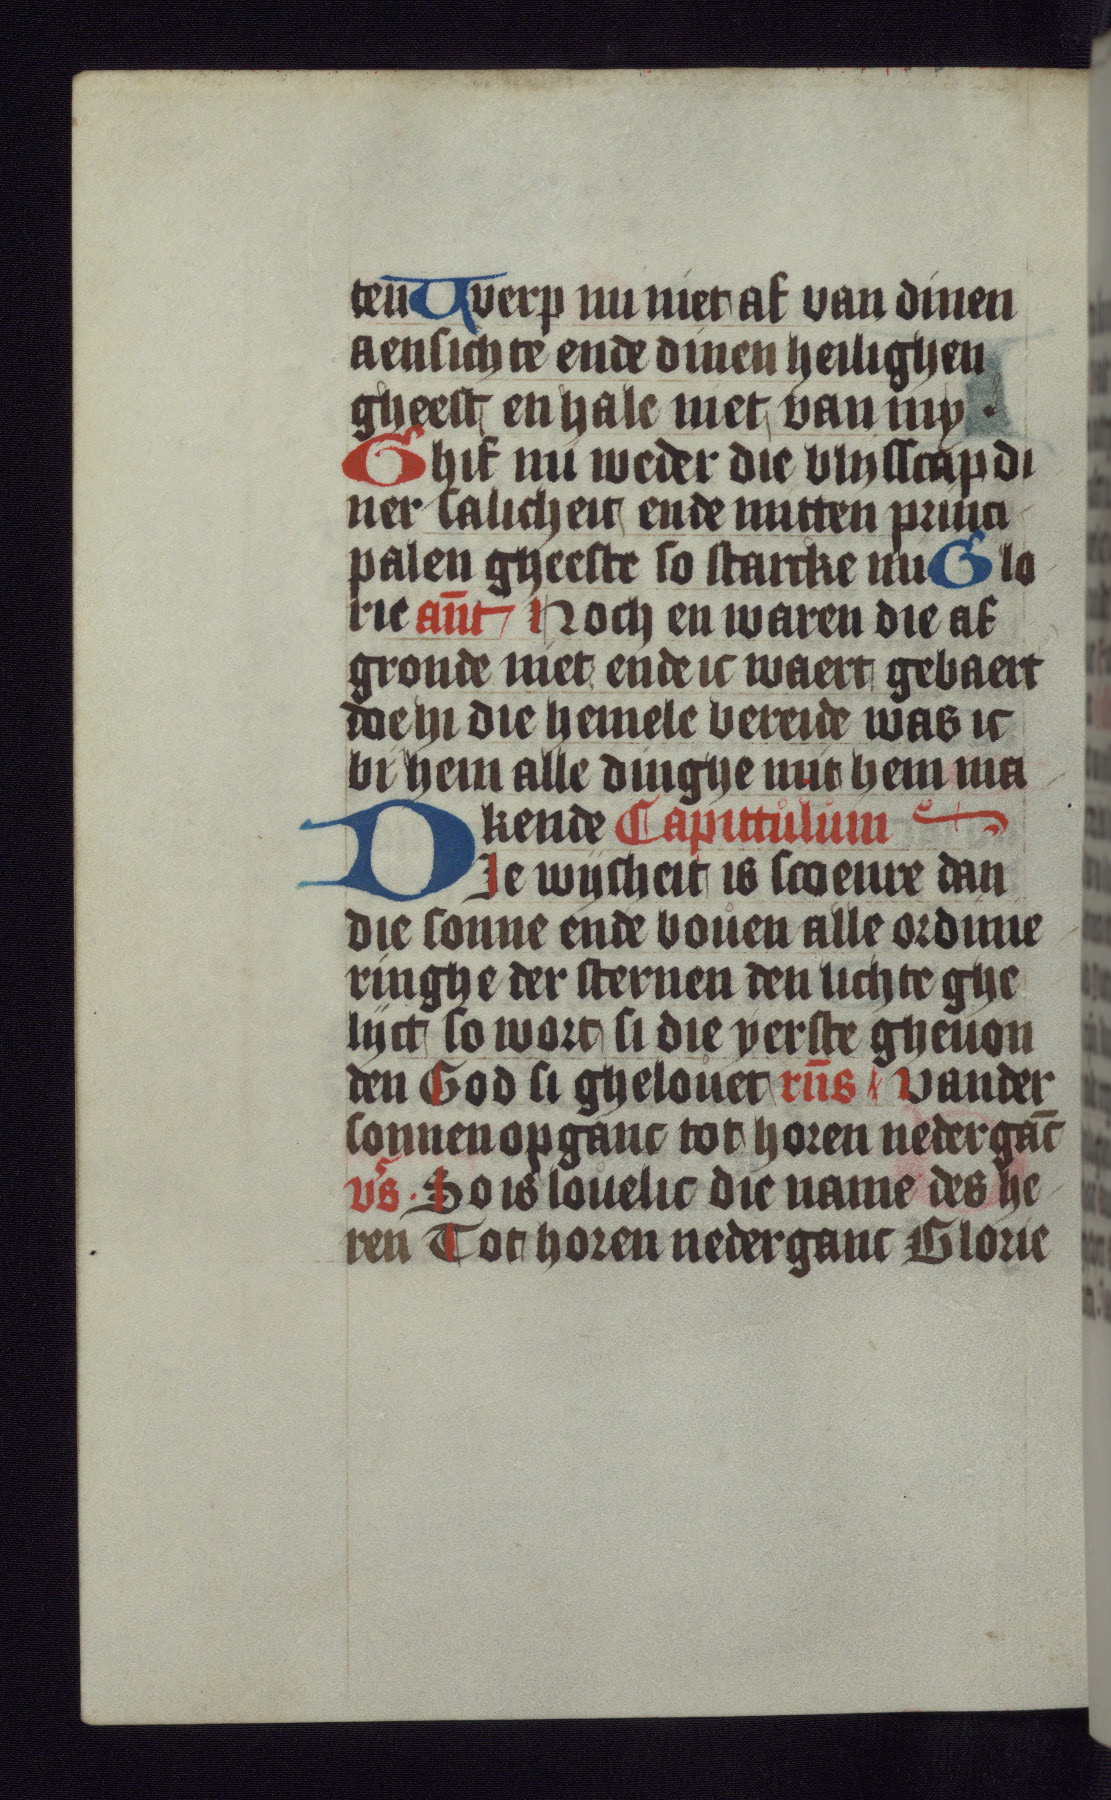 ten̄ Werp mi niet af van dinen
aensichte ende dinen heilighen
gheest en hale niet van my .
Ghif mi weder die vlijsscap di
ner salicheit ende mitten princi
palen gheeste so starcke mi Glo
rie an̄t Noch en waren die af
gronde niet ende ic waert gebaert
doe hi die hemele bereide was ic
bi hem alle dinghe mit hem ma
kende Capittulum
Die wijsheit is scoenre dan
die sonne ende bouen alle ordinie
ringhe der sternen den lichte ghe
lijct so wort si die yerste gheuon
den God si ghelouet rn̄s Vander
sonnen opganc tot horen nedergāc
vs̄ . So is louelic die name des he
ren Tot horen nederganc Glorie